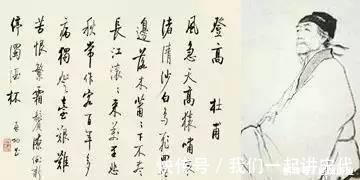 登高 杜甫
風急天高猿嘯哀
渚清沙白鳥飛回無
邊落木蕭蕭下不盡
長江滾滾來萬里悲
秋常作客百年多
病獨登臺艱難
苦恨繁霜鬢潦倒新
停濁酒杯 啟功書
快传号/我们一起讲唐代